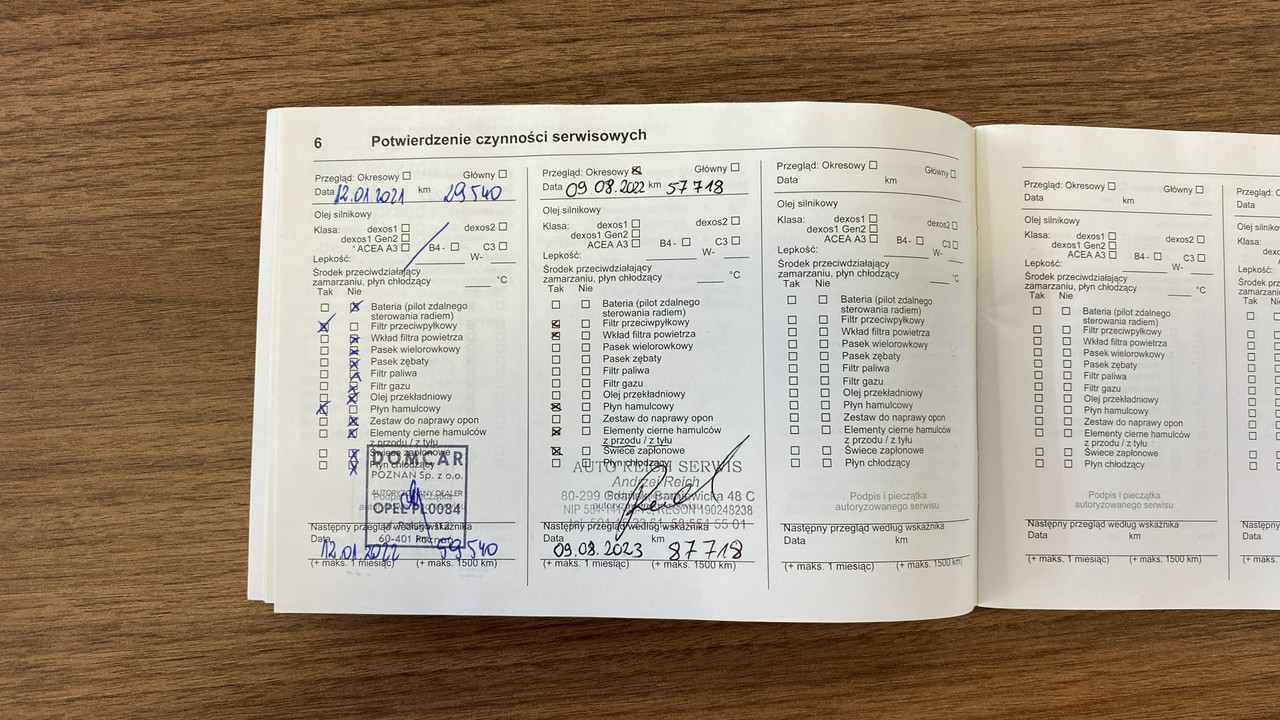 6 Potwierdzenie czynności serwisowych
Przegląd: Okresowy Główny
Data 12.01.2021 km 29540
Olej silnikowy
Klasa: dexos1 dexos2
dexos1 Gen2
ACEA A3 B4 - C3
Lepkość: W-
Środek przeciwdziałający
zamarzaniu, płyn chłodzący °C
Tak Nie
Bateria (pilot zdalnego
sterowania radiem)
Filtr przeciwpyłkowy
Wkład filtra powietrza
Pasek wielorowkowy
Pasek zębaty
Filtr paliwa
Filtr gazu
Olej przekładniowy
Płyn hamulcowy
Zestaw do naprawy opon
Elementy cierne hamulców
z przodu / z tyłu
Świece zapłonowe
Płyn chłodzący
DOMCAR
POZNAŃ Sp. z o.o.
AUTORYZOWANY DEALER
OPEL PL0084
60-401 Poznań
Następny przegląd według wskaźnika
Data 12.01.2022 km 59540
(+ maks. 1 miesiąc) (+ maks. 1500 km)
Przegląd: Okresowy Główny
Data 09.08.2022 km 57718
Olej silnikowy
Klasa: dexos1 dexos2
dexos1 Gen2
ACEA A3 B4 - C3
Lepkość: W-
Środek przeciwdziałający
zamarzaniu, płyn chłodzący °C
Tak Nie
Bateria (pilot zdalnego
sterowania radiem)
Filtr przeciwpyłkowy
Wkład filtra powietrza
Pasek wielorowkowy
Pasek zębaty
Filtr paliwa
Filtr gazu
Olej przekładniowy
Płyn hamulcowy
Zestaw do naprawy opon
Elementy cierne hamulców
z przodu / z tyłu
Świece zapłonowe
Płyn chłodzący
AUTO REICH SERWIS
Andrzej Reich
80-299 Gdańsk 48 C
REGON 190248238
Następny przegląd według wskaźnika
Data km
09.08.2023 87718
(+ maks. 1 miesiąc) (+ maks. 1500 km)
Przegląd: Okresowy Główny
Data km
Olej silnikowy
Klasa: dexos1 dexos2
dexos1 Gen2
ACEA A3 B4 - C3
Lepkość: W-
Środek przeciwdziałający
zamarzaniu, płyn chłodzący °C
Tak Nie
Bateria (pilot zdalnego
sterowania radiem)
Filtr przeciwpyłkowy
Wkład filtra powietrza
Pasek wielorowkowy
Pasek zębaty
Filtr paliwa
Filtr gazu
Olej przekładniowy
Płyn hamulcowy
Zestaw do naprawy opon
Elementy cierne hamulców
z przodu / z tyłu
Świece zapłonowe
Płyn chłodzący
Podpis i pieczątka
autoryzowanego serwisu
Następny przegląd według wskaźnika
Data km
(+ maks. 1 miesiąc) (+ maks. 1500 km)
Przegląd: Okresowy Główny
Data km
Olej silnikowy
Klasa: dexos1 dexos2
dexos1 Gen2
ACEA A3 B4 - C3
Lepkość: W-
Środek przeciwdziałający
zamarzaniu, płyn chłodzący °C
Tak Nie
Bateria (pilot zdalnego
sterowania radiem)
Filtr przeciwpyłkowy
Wkład filtra powietrza
Pasek wielorowkowy
Pasek zębaty
Filtr paliwa
Filtr gazu
Olej przekładniowy
Płyn hamulcowy
Zestaw do naprawy opon
Elementy cierne hamulców
z przodu / z tyłu
Świece zapłonowe
Płyn chłodzący
Podpis i pieczątka
autoryzowanego serwisu
Następny przegląd według wskaźnika
Data km
(+ maks. 1 miesiąc) (+ maks. 1500 km)
Data
Olej silni
Klasa:
Lepkość:
Tak Nie
Data